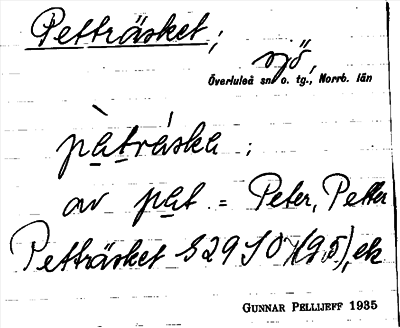 Petträsket;
sjö,
Överluleå sn o. tg., Norrb. län
pàtráska;
av pat = Peter, Petter
Petträsket S29 SO (g5), ek
GUNNAR PELLIJEFF 1935